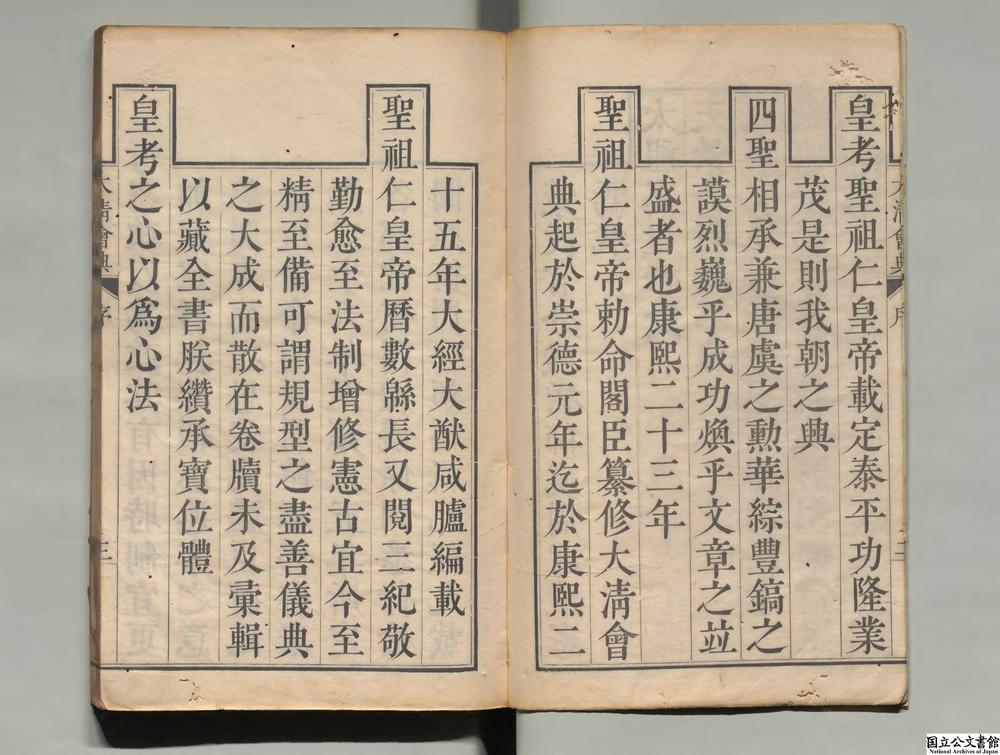 皇考聖祖仁皇帝載定泰平功隆業
茂是則我朝之興
四聖相承兼唐虞之勳華綜豐鎬之
謨烈巍乎成功煥乎文章之竝
盛者也康熙二十三年
聖祖仁皇帝勅命閣臣纂修大淸會
典起於崇德元年迄於康熙二
十五年大經大猷咸臚編載
聖祖仁皇帝曆數緜長又閱三紀敬
勤愈至法制增修憲古宜今至
精至備可謂規型之盡善儀典
之大成而散在卷牘未及彙輯
以藏全書朕纘承寶位體
皇考之心以爲心法
大淸會典 序 三
国立公文書館
National Archives of Japan